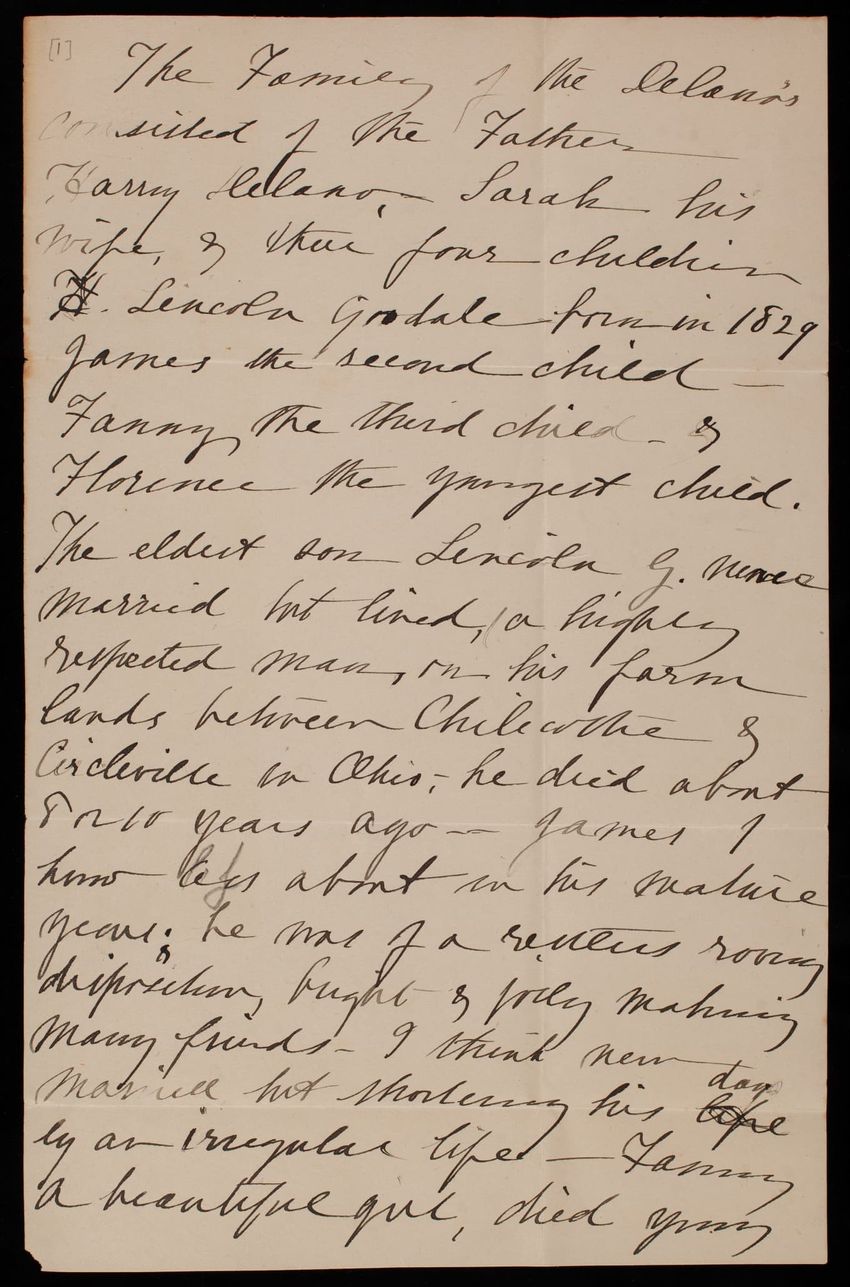 [1]
The Family of the Delano's
consisted of the Father
Harry Delano, - Sarah his
wife, & their four children
H. Lincoln Goodale born in 1829
James the second child -
Fanny the third child - &
Florence the youngest child.
The eldest son Lincoln G. never
married but lived, a highly
respected man, on his farm
lands between Chilecothe &
Circleville in Ohio, - he died about
8 or 10 years ago - James I
know less about in his mature
years; he was of a restless roving
disposition, bright & jolly making
many friends - I think never
married but shortening his life days
by an irregular life - Fanny
a beautiful girl, died young